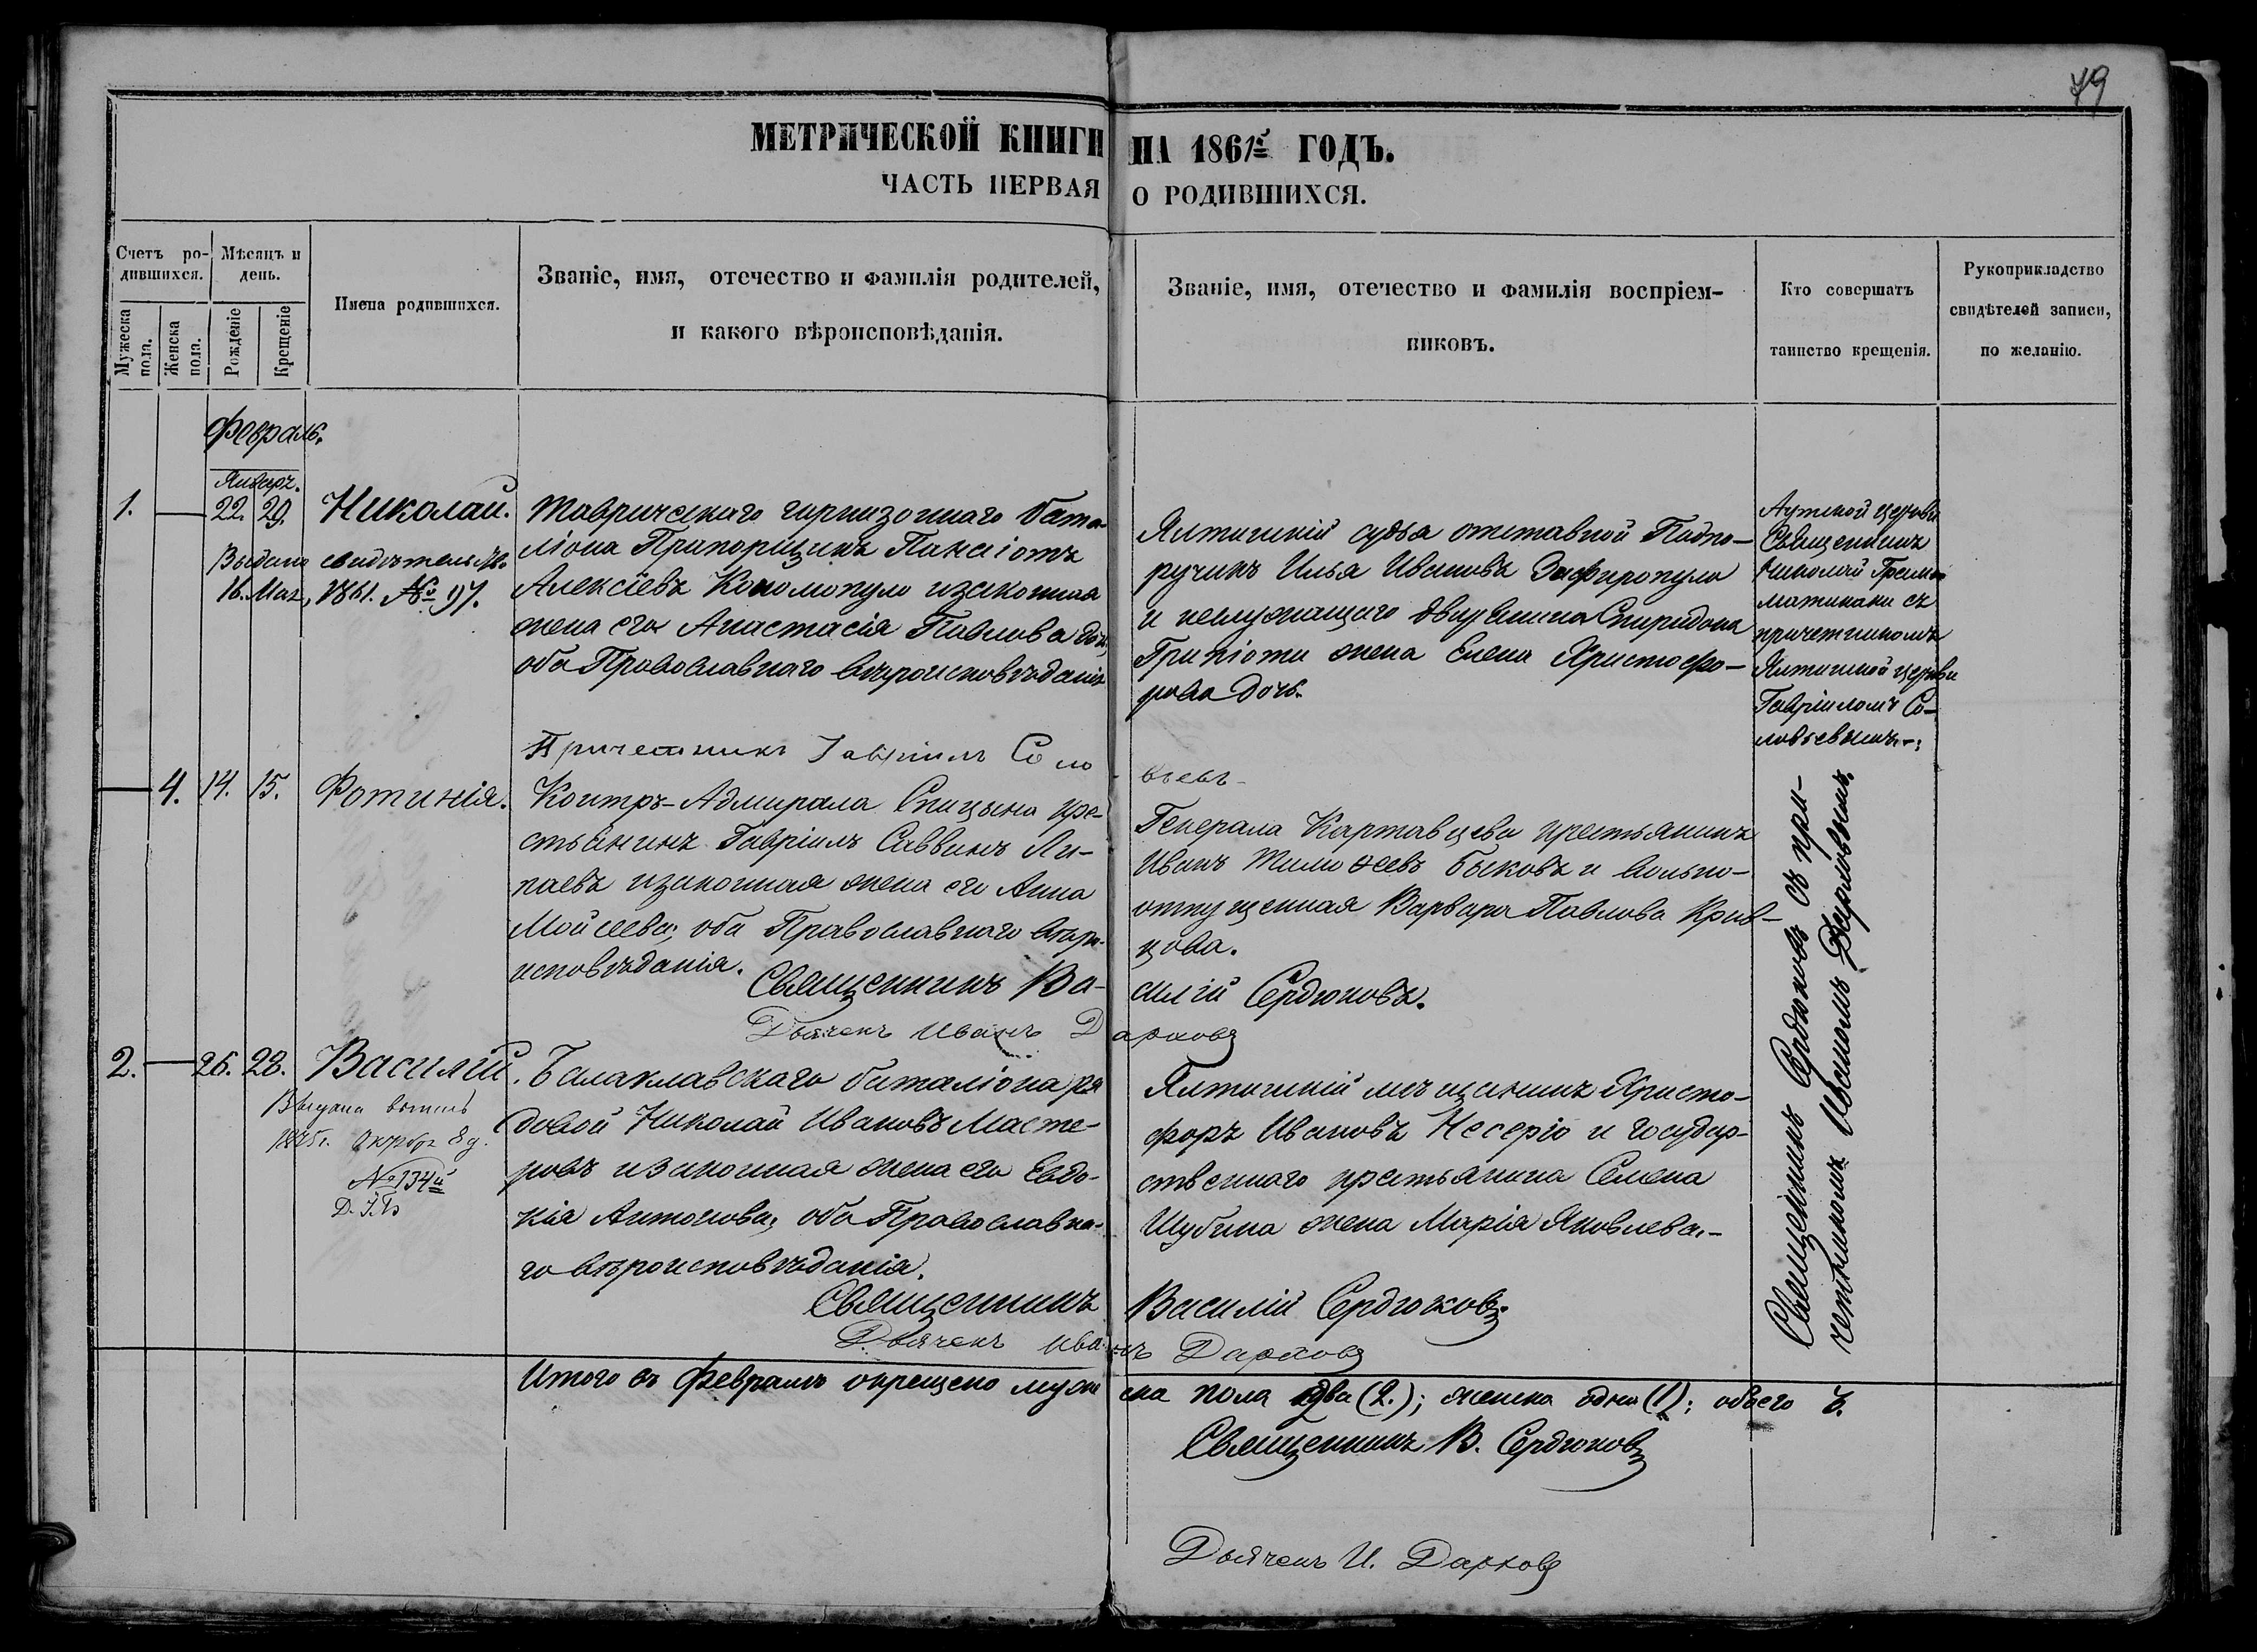 79
МЕТРИЧЕСКОЙ КНИГИ НА 1861й ГОДЪ.
ЧАСТЬ ПЕРВАЯ О РОДИВШИХСЯ.
Счетъ ро-
дившихся.
Мужеска
пола.
Женска
пола.
Мѣсяцъ и
день.
Рожденіе
Крещеніе
Имена родившихся.
Званіе, имя, отечество и фамилія родителей,
и какого вѣроисповѣданія.
Званіе, имя, отечество и фамилія воспріем-
никовъ.
Кто совершатъ
таинство крещенія.
Рукоприкладство
свидѣтелей записи,
по желанію.
Февраль.
Январь.
1.
22. 29.
Николай.
Выдано свидѣтельство
16. Мая, 1861. № 97.
Таврическаго гарнизоннаго бата-
ліона Прапорщикъ Панаіотъ
Алексіевъ Кономопуло и законная
жена его Анастасія Павлова дочь,
оба Православнаго вѣроисповѣданія
Ялтинскій судья отставной Подпо-
ручикъ Илья Ивановъ Зафиропуло
и неслужащаго дворянина Спиридона
Грипіоти жена Елена Христофо-
рова дочь.
Аутской церкви
Священникъ
Николай
съ
причетникомъ
Ялтинской церкви
Гавріиломъ Со-
ловьевымъ.
Причетникъ Гавріилъ Соло-
вьевъ
4. 14. 15.
Фотинія.
Контръ-Адмирала Спицына кре-
стьянинъ Гавріилъ Саввинъ Ли-
паевъ и законная жена его Анна
Мойсеева, оба Православнаго вѣро-
исповѣданія.
Генерала Картавцева крестьянинъ
Иванъ Тимоѳеевъ Быковъ и вольно-
отпущенная Варвара Павлова Крив-
цова.
Священникъ Ва-
силій Сердюковъ.
Дьячекъ Иванъ Дарковъ
Священникъ Сердюковъ съ при-
четникомъ Иваномъ Дарковымъ.
2. 26. 28.
Василій.
Выдана выпись
1885г. Октября 8 д.
№ 134й
Балаклавскаго баталіона ря-
довой Николай Ивановъ Масте-
ровъ и законная жена его Евдо-
кія Антонова, оба Православна-
го вѣроисповѣданія.
Ялтинскій мѣщанинъ Христо-
форъ Ивановъ Несеріо и государ-
ственнаго крестьянина Семена
Шубина жена Марія Яковлева.
Священникъ Василій Сердюковъ.
Дьячекъ Иванъ Дарковъ
Итого въ Февралѣ окрещено мужеска пола два (2.); женска одна (1); обоего 3.
Священникъ В. Сердюковъ
Дьячекъ И. Дарковъ